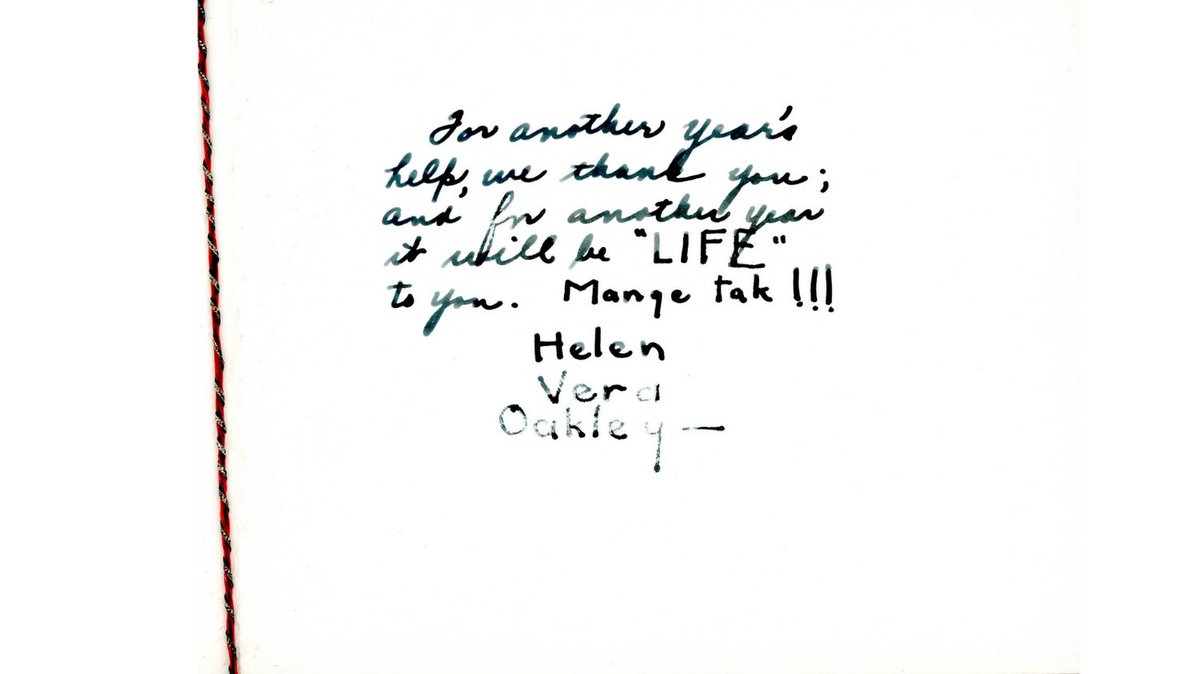 For another year's
help, we thank you;
and for another year
it will be "LIFE"
to you. Mange tak!!!
Helen
Vera
Oakley —